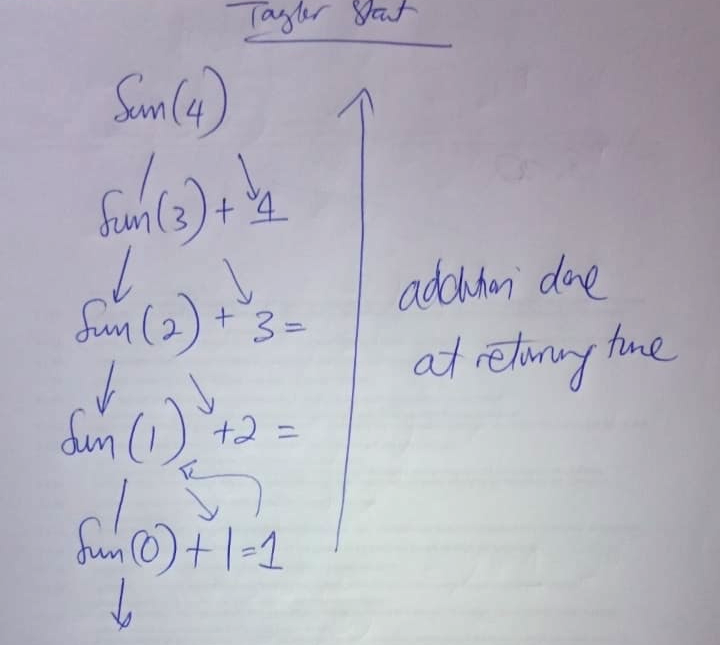 Taylor Start
Sum(4)
Sum(3) + 4
Sum(2) + 3 =
Sum(1) +2 =
Sum(0) + 1 = 1
addition done
at returning time